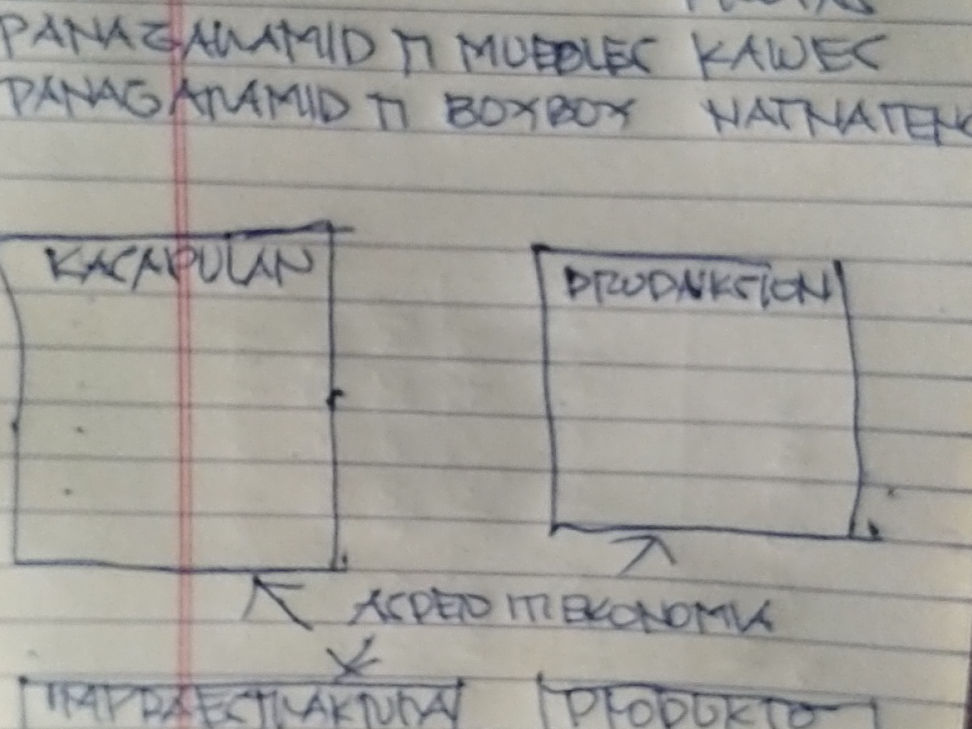 PANAGARAMID TI MUEBLES KAWES
PANAGARAMID TI BOXBOX NATNATENG
KASAPULAN
PRODUKSION
ASPETO ITI EKONOMIA
IMPRAESTRUKTURA
PRODUKTO